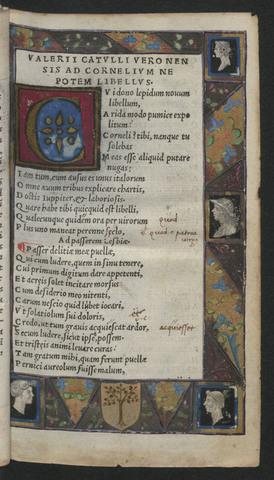 VALERII CATVLLI VERONEN
SIS AD CORNELIVM NE
POTEM LIBELLVS.
C
Vi dono lepidum nouum
libellum,
Arida modo pumice expo
litum?
Corneli tibi, nanque tu
solebas
Meas esse aliquid putare
nugas:
Iam tum, cum ausus es unus italorum
Omne æuum tribus explicare chartis,
Doctis iuppiter, & laboriosis.
Quare habe tibi quicquid est libelli,
Qualecunque quidem ora per uirorum
quod
Plus uno maneat perenne seclo,
quod o patrona
uirgo
Ad passerem Lesbiæ.
Passer delitiæ meæ puellæ,
Qui cum ludere, quem in sinu tenere,
Cui primum digitum dare appetenti,
Et acreis solet incitare morsus:
Cum desiderio meo nitenti,
Carum nescio quid libet iocari,
Vt solatiolum sui doloris,
Credo, ut cum grauis acquiescat ardor,
acquiesset
Tecum ludere, sicut ipsa, possem,
Et tristeis animi leuare curas:
Tam gratum mihi, quam ferunt puellæ
Pernici aureolum fuisse malum,